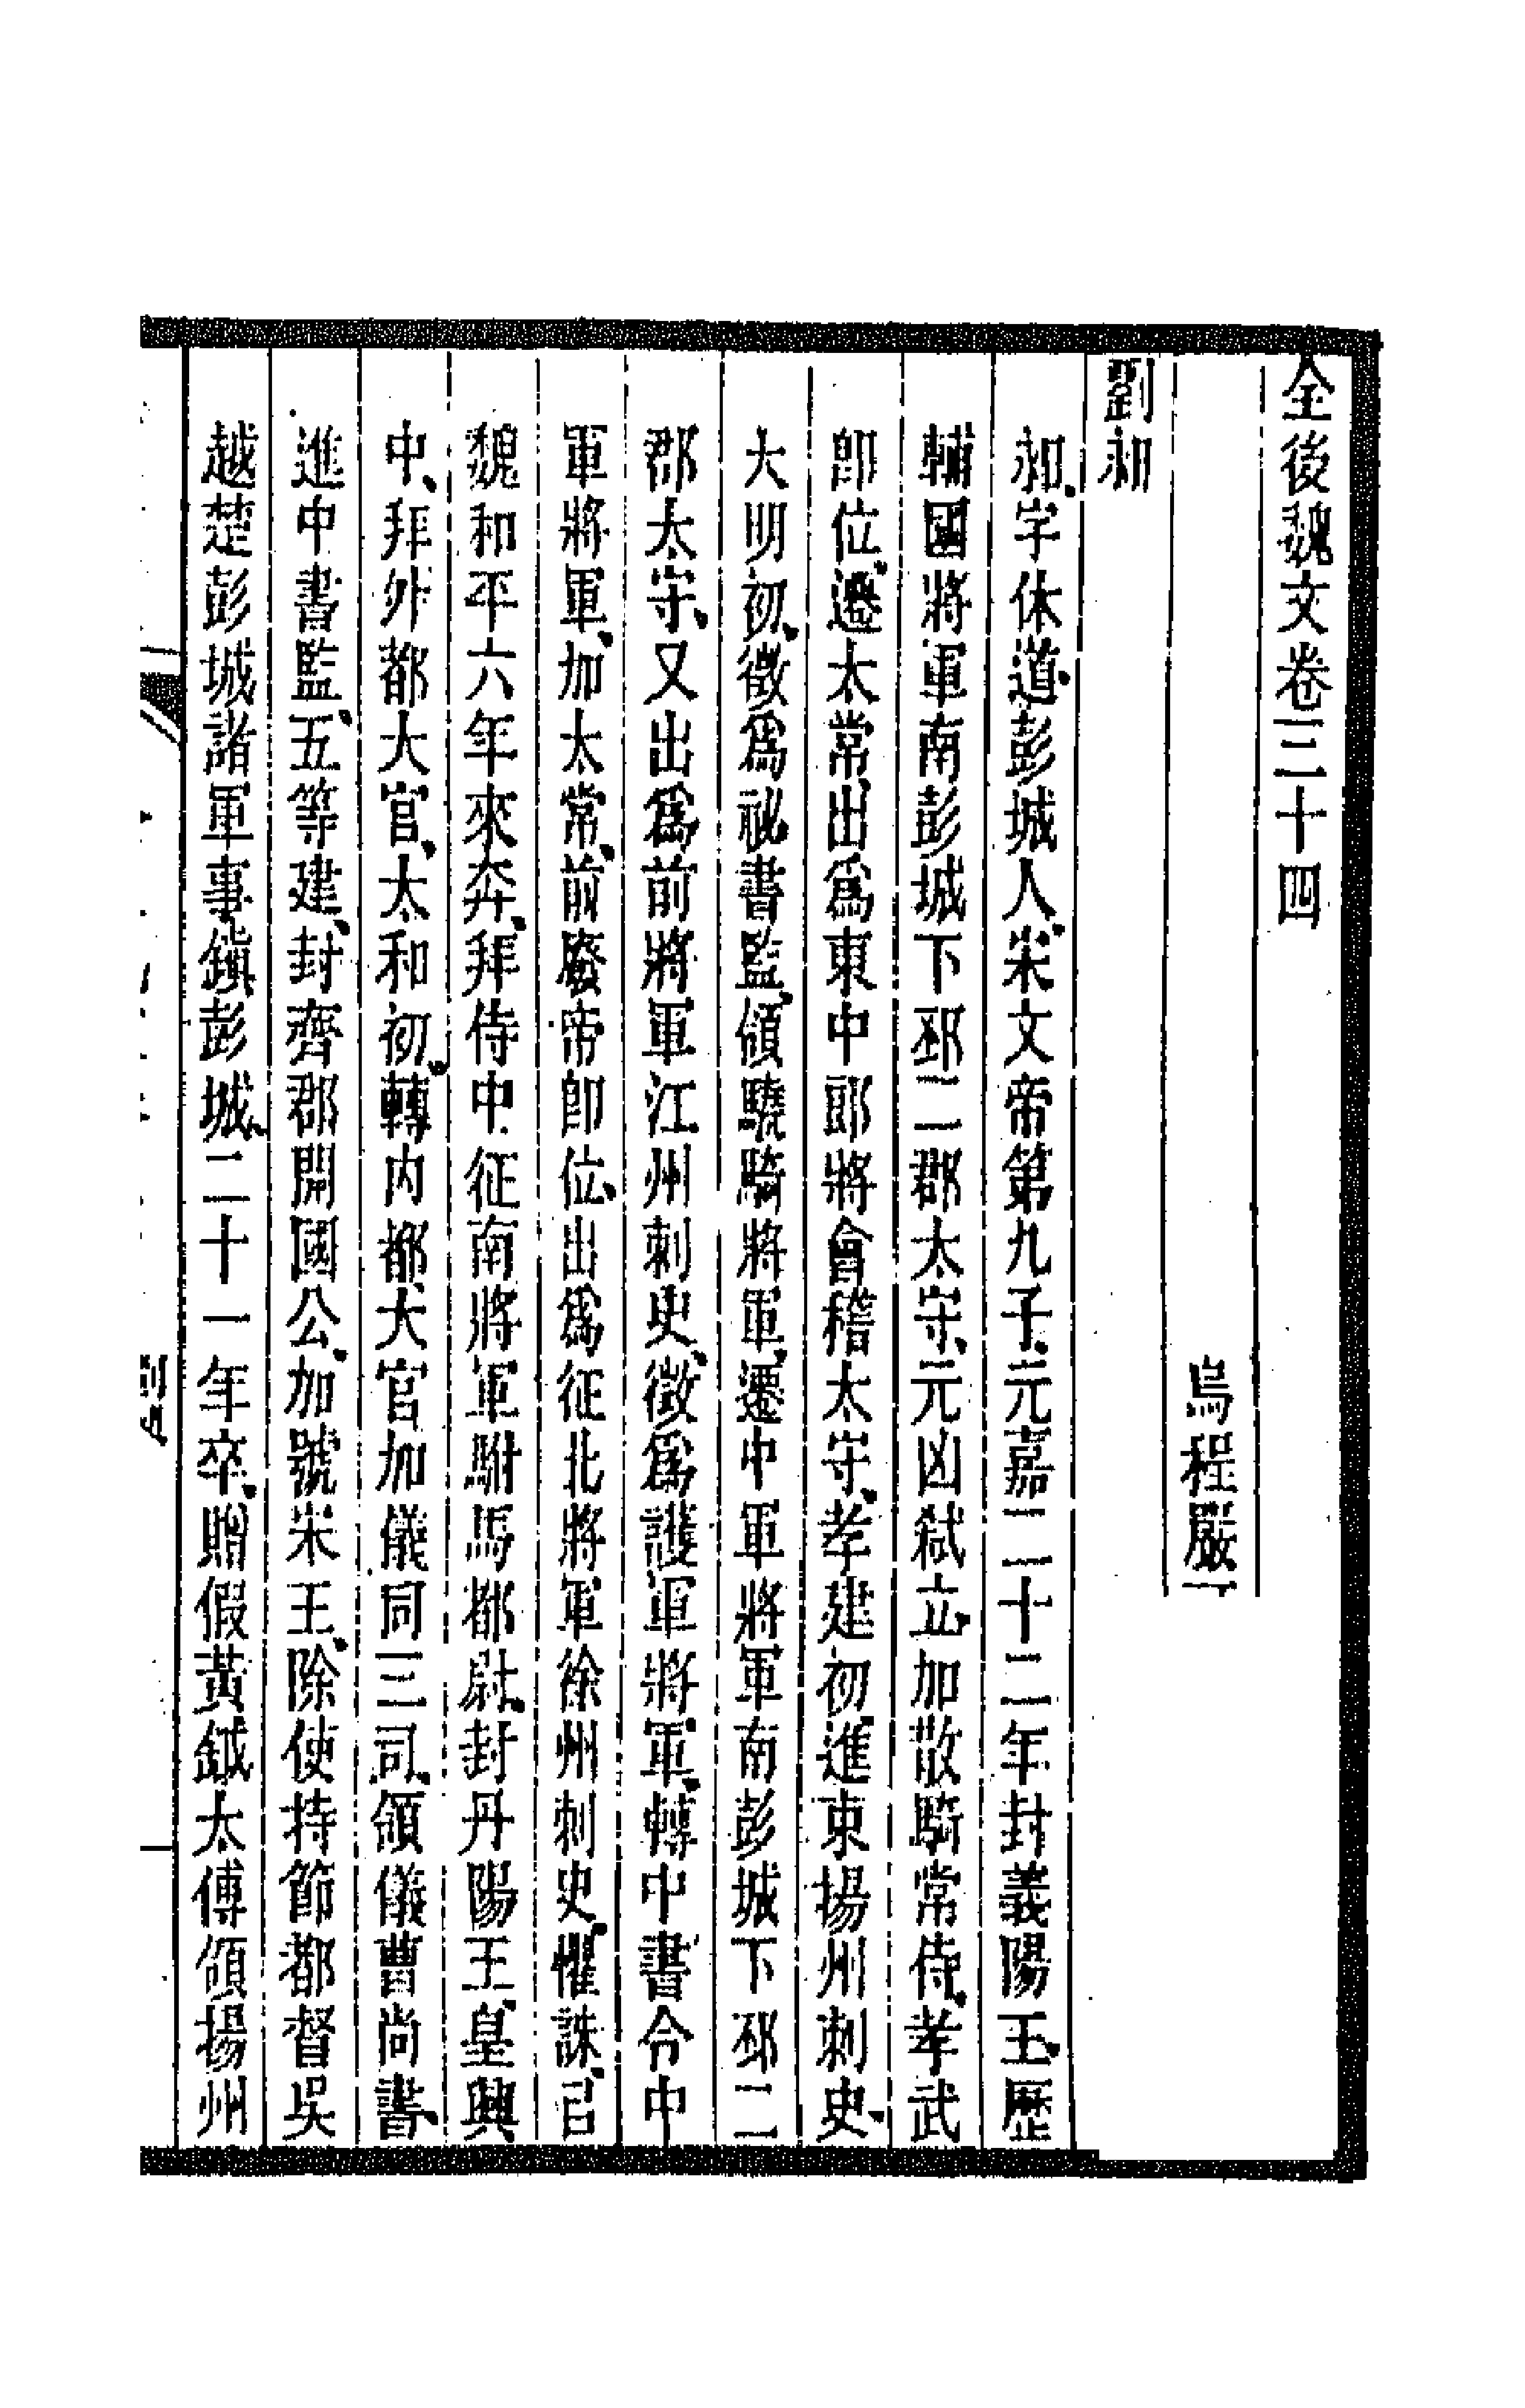 全後魏文卷三十四
烏程嚴可
劉昶
昶、字休道、彭城人、宋文帝第九子、元嘉二十二年封義陽王、歷
輔國將軍南彭城下邳二郡太守、元凶弑立、加散騎常侍、孝武
卽位、遷太常、出爲東中郎將會稽太守、孝建初、進東揚州刺史、
大明初、徵爲祕書監、領驍騎將軍、遷中軍將軍南彭城下邳二
郡太守、又出爲前將軍江州刺史、徵爲護軍將軍、轉中書令中
軍將軍、加太常、前廢帝卽位、出爲征北將軍徐州刺史、懼誅、㠯
魏和平六年來奔、拜侍中征南將軍駙馬都尉、封丹陽王、皇興
中、拜外都大官、太和初、轉内都大官加儀同三司、領儀曹尚書、
進中書監、五等建、封齊郡開國公、加號宋王、除使持節都督吳
越楚彭城諸軍事鎮彭城、二十一年卒、贈假黃鉞太傅領揚州